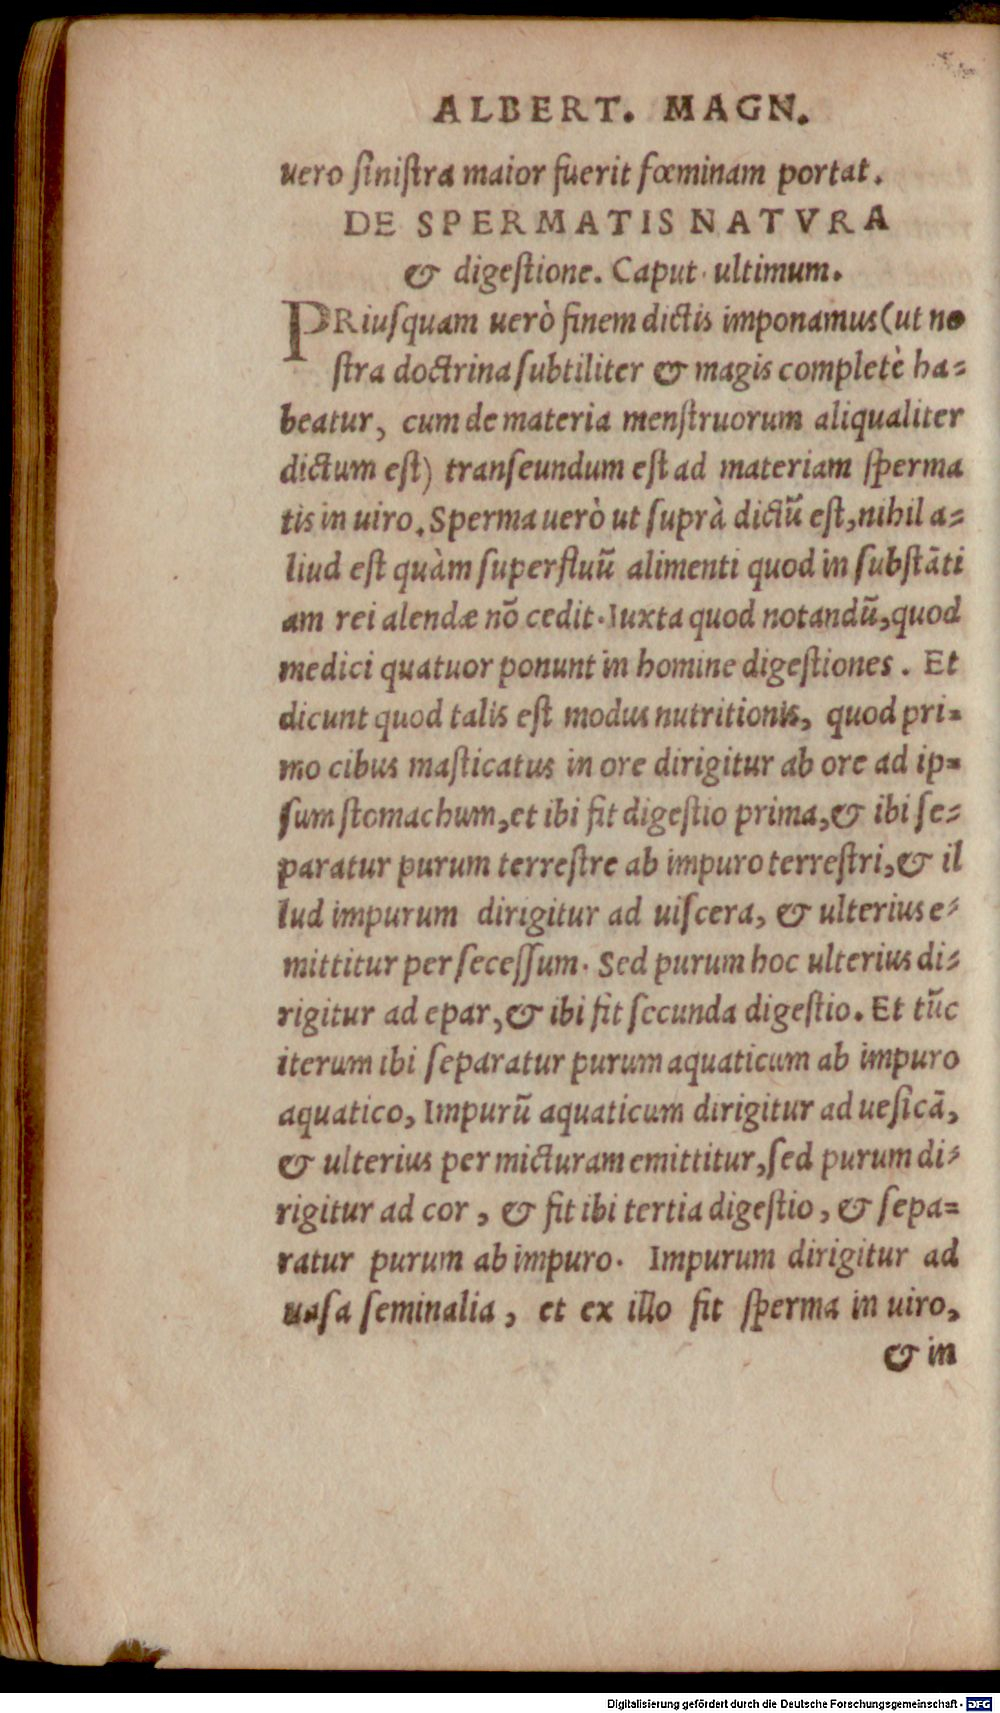 ALBERT. MAGN.
uero ſiniſtra maior fuerit fœminam portat.
DE SPERMATIS NATVRA
& digeſtione. Caput ultimum.
PRiuſquam uerò finem dictis imponamus (ut no
ſtra doctrina ſubtiliter & magis completè ha=
beatur, cum de materia menſtruorum aliqualiter
dictum eſt) tranſeundum eſt ad materiam ſperma
tis in uiro. Sperma uerò ut ſuprà dictũ eſt, nihil a=
liud eſt quàm ſuperfluũ alimenti quod in ſubſtãti
am rei alendæ nõ cedit. Iuxta quod notandũ, quod
medici quatuor ponunt in homine digeſtiones. Et
dicunt quod talis eſt modus nutritionis, quod pri=
mo cibus maſticatus in ore dirigitur ab ore ad ip=
ſum ſtomachum, et ibi fit digeſtio prima, & ibi ſe=
paratur purum terreſtre ab impuro terreſtri, & il
lud impurum dirigitur ad uiſcera, & ulterius e=
mittitur per ſeceſſum. Sed purum hoc ulterius di=
rigitur ad epar, & ibi fit ſecunda digeſtio. Et tũc
iterum ibi ſeparatur purum aquaticum ab impuro
aquatico, Impurũ aquaticum dirigitur ad ueſicã,
& ulterius per micturam emittitur, ſed purum di=
rigitur ad cor, & fit ibi tertia digeſtio, & ſepa=
ratur purum ab impuro. Impurum dirigitur ad
uaſa ſeminalia, et ex illo fit ſperma in uiro,
& in
Digitalisierung gefördert durch die Deutsche Forschungsgemeinschaft - DFG